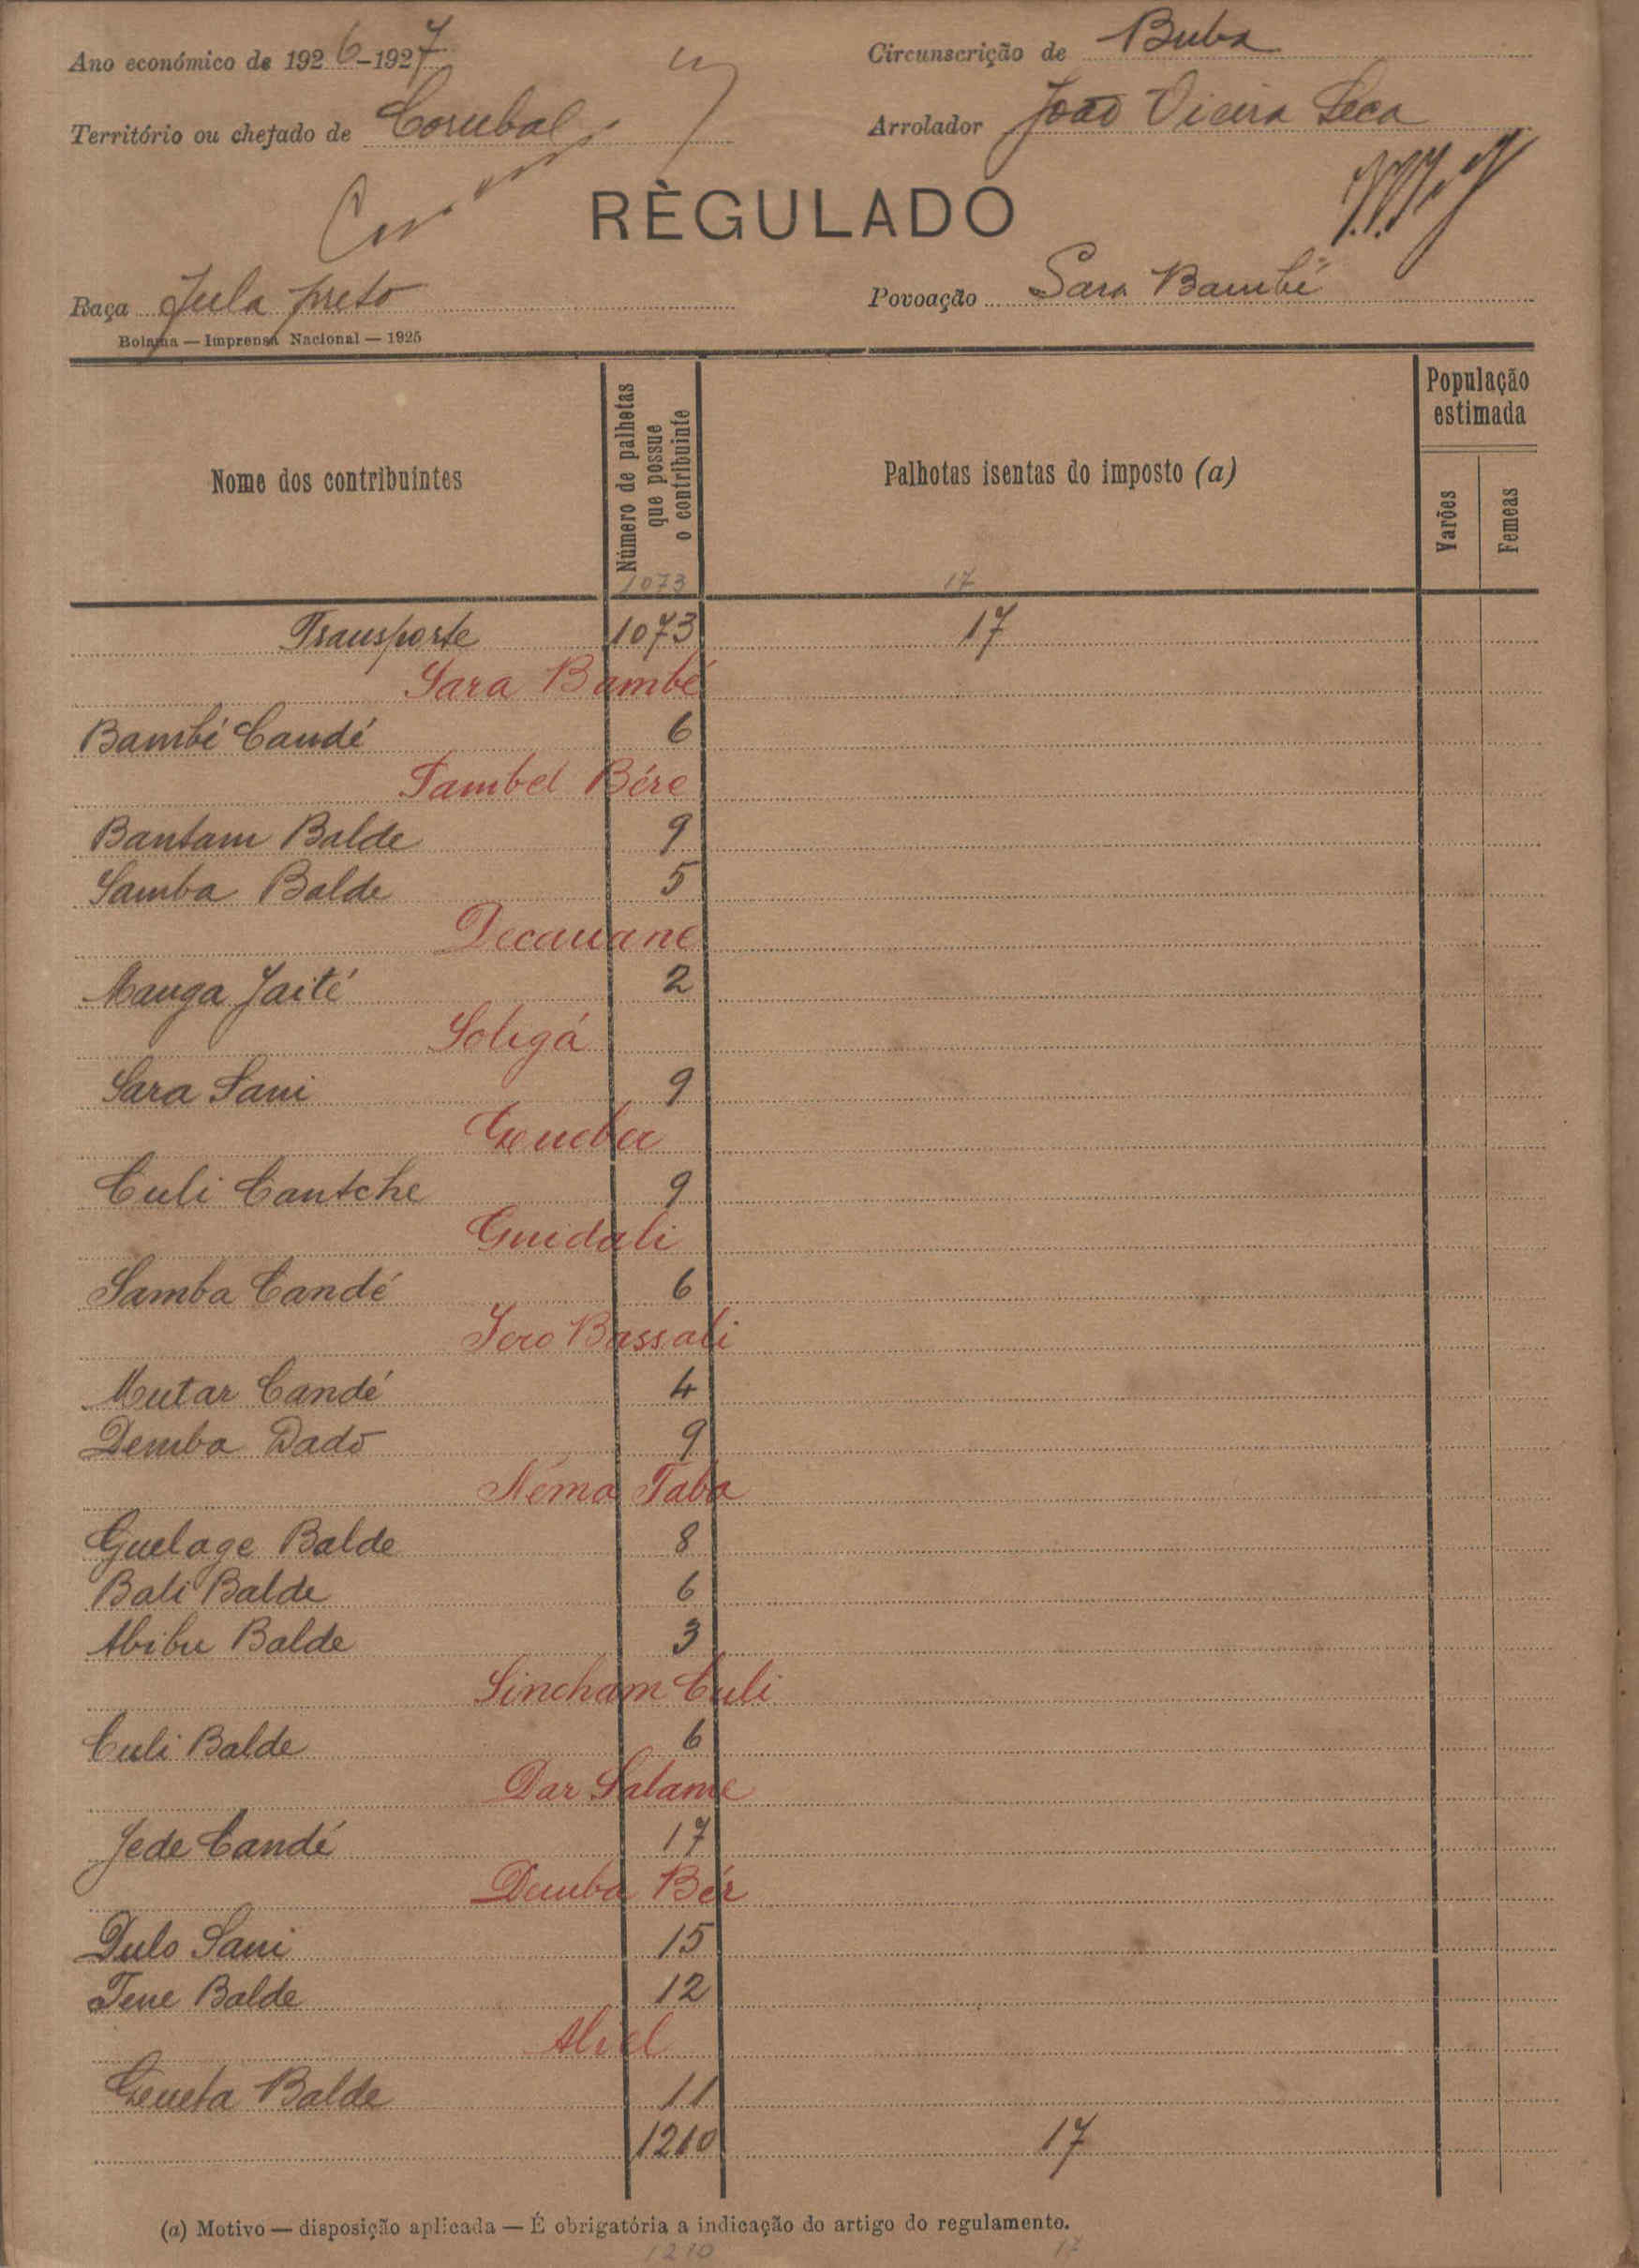 Ano económico de 1926-1927
Circunscrição de Buba
Território ou chefado de Corubal
Arrolador João Vieira Seca
RÈGULADO
Raça Fula preto
Povoação Sara Bambé
Bolama — Imprensa Nacional — 1925
Nome dos contribuintes
Número de palhetas que possue o contribuinte
Palhotas isentas do imposto (a)
População estimada
Varões
Femeas
1073 17
Transporte 1073 17
Sara Bambé
Bambé Candé 6
Sambel Bére
Bantam Balde 9
Samba Balde 5
Decauane
Manga Jaité 2
Soligá
Sara Sani 9
Culi Cantche 9
Guidali
Samba Candé 6
Iero Bassali
Mutar Candé 4
Demba Dado 9
Néma Taba
Guelage Balde 8
Bali Balde 6
Abibu Balde 3
Sincham Culi
Culi Balde 6
Dar Salame
Jede Candé 17
Demba Bér
Dulo Sani 15
Tene Balde 12
Aliel
Balde 11
1210 17
(a) Motivo — disposição aplicada — É obrigatória a indicação do artigo do regulamento.
1210 17